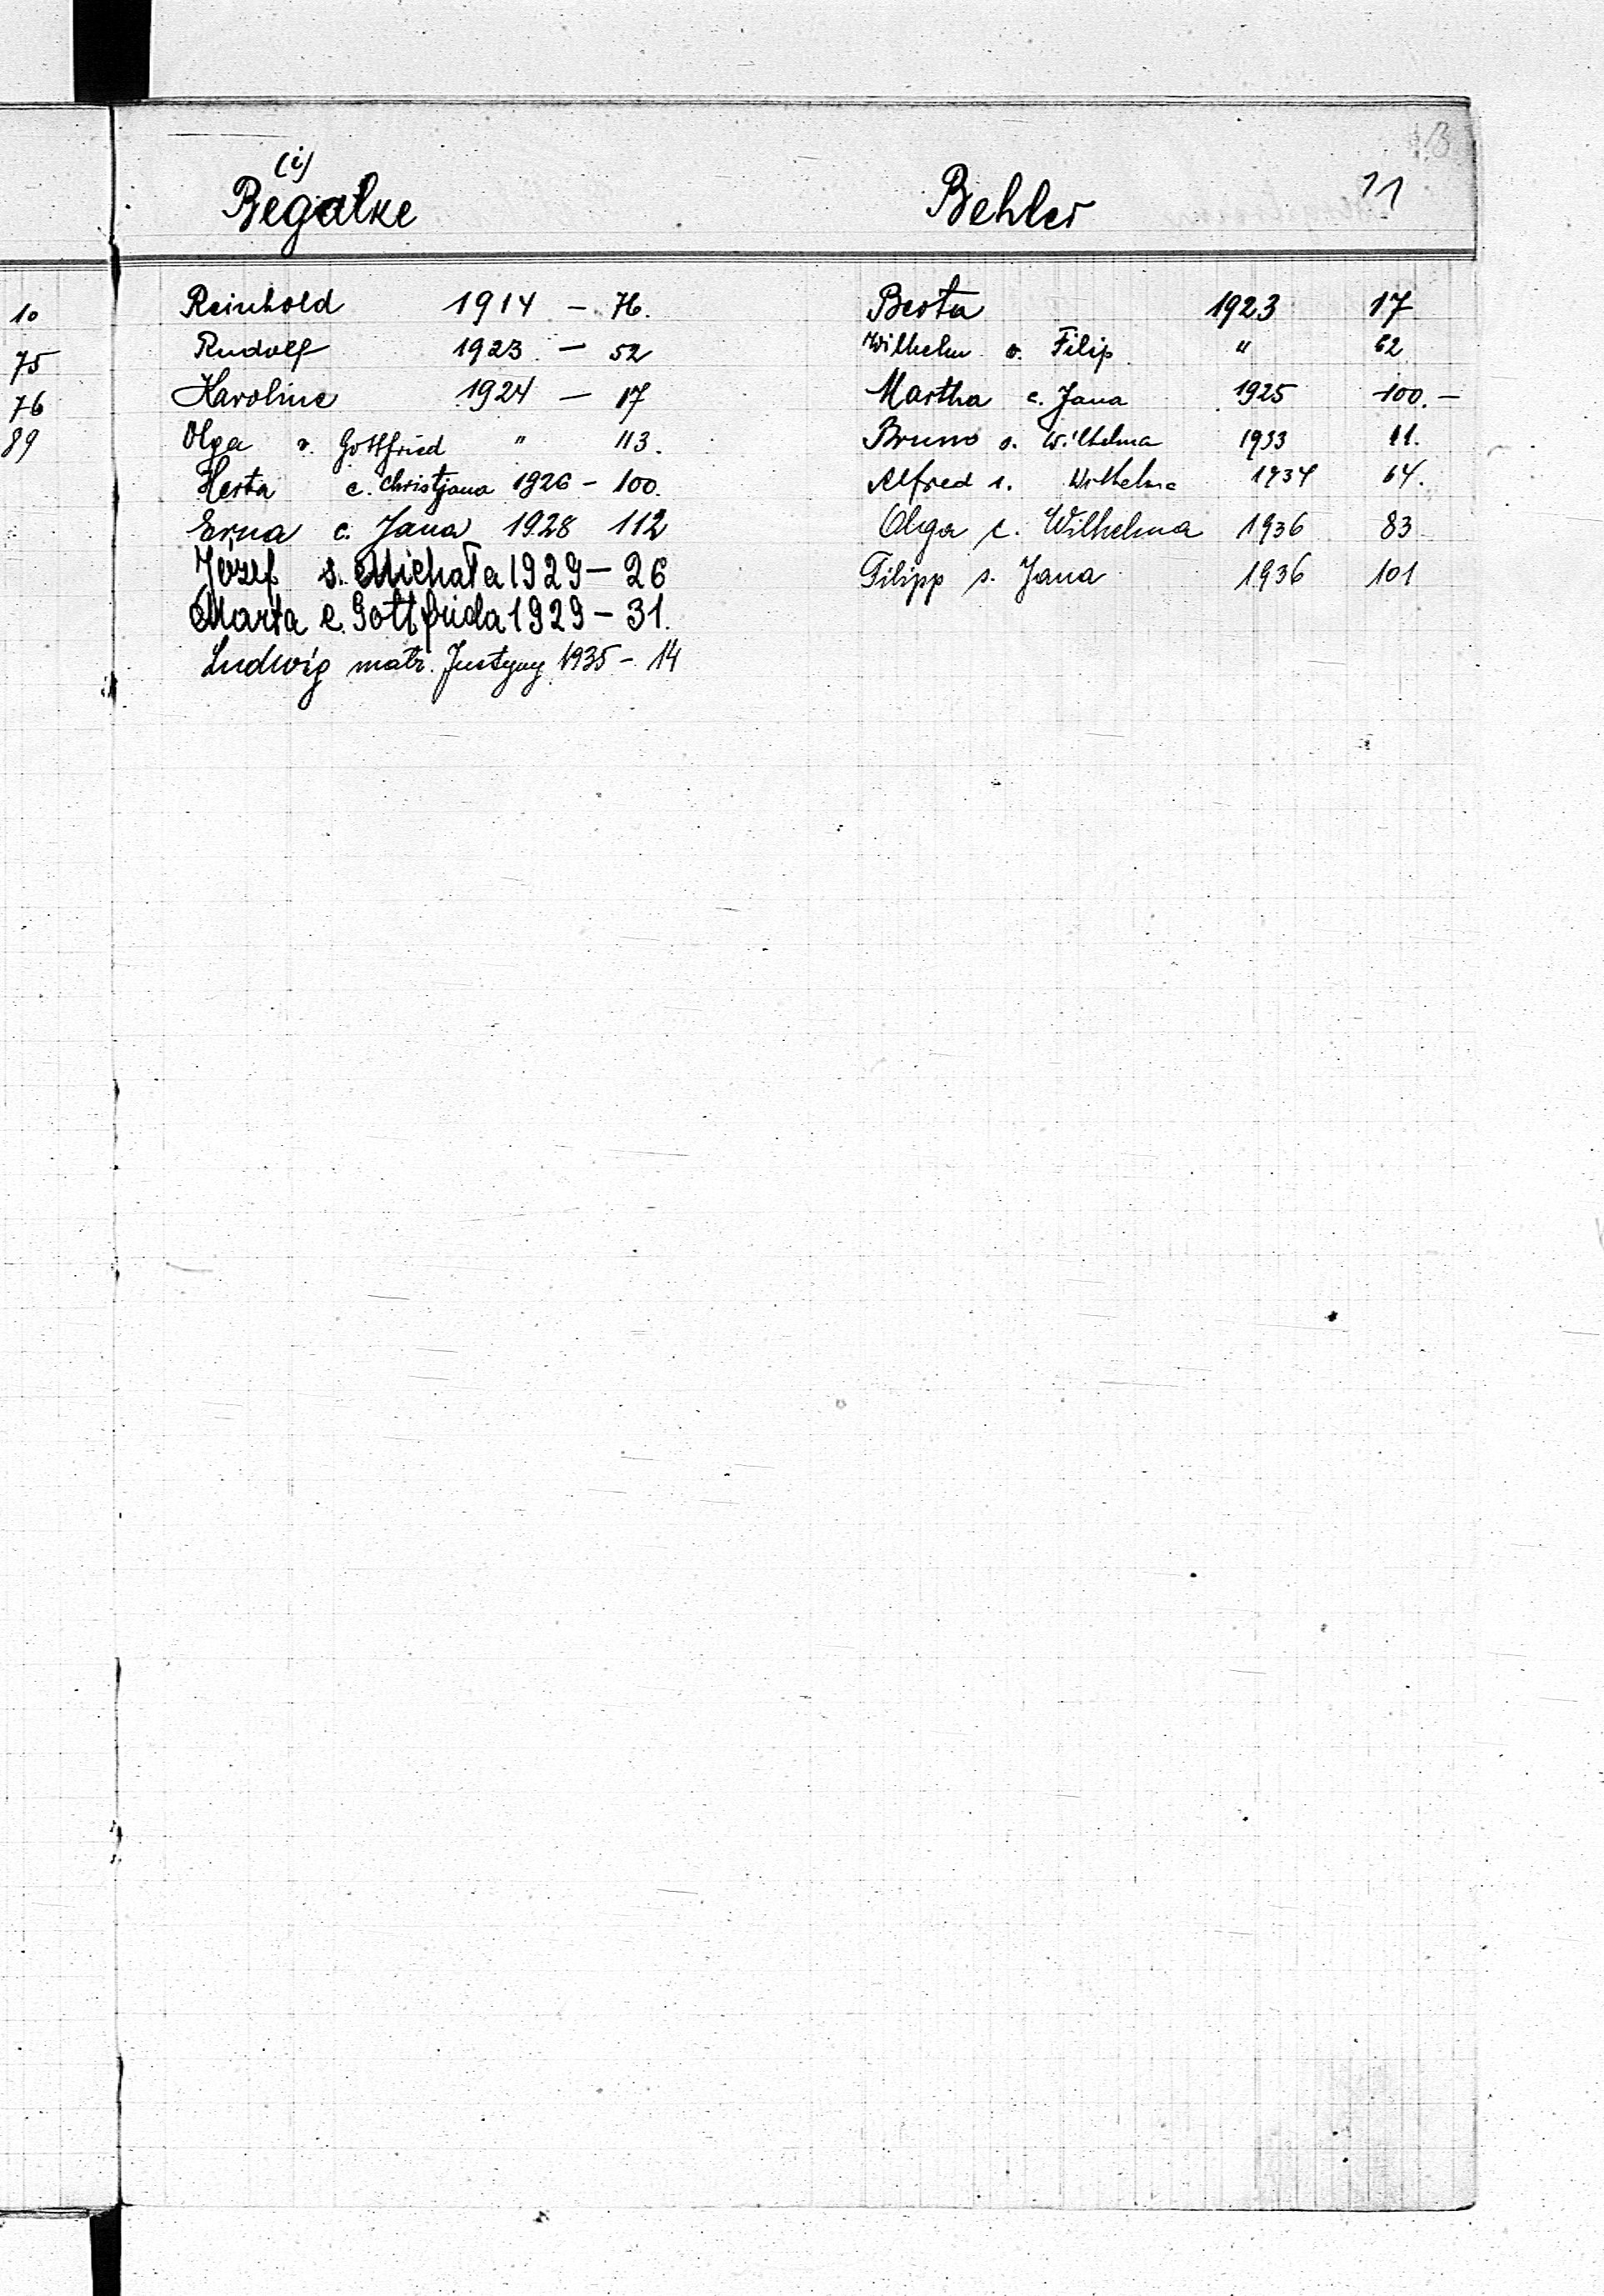 B
11
(i)
Begalke
Reinhold 1914 – 76.
Rudolf 1923 – 52
Karoline 1924 – 17
Olga v. Gottfried " 113.
Herta c. Christjana 1926 – 100.
Erna c. Jana 1928 112
Józef s. Michała 1929 – 26
Marta c. Gottfrida 1929 – 31.
Ludwig matr. Justyny 1935 – 14
Behler
Berta 1923 17
Wilhelm v. Filip " 62
Martha c. Jana 1925 100. –
Bruno s. Wilhelma 1933 11.
Alfred s. Wilhelma 1934 64.
Olga c. Wilhelma 1936 83
Filipp s. Jana 1936 101
10
75
76
89